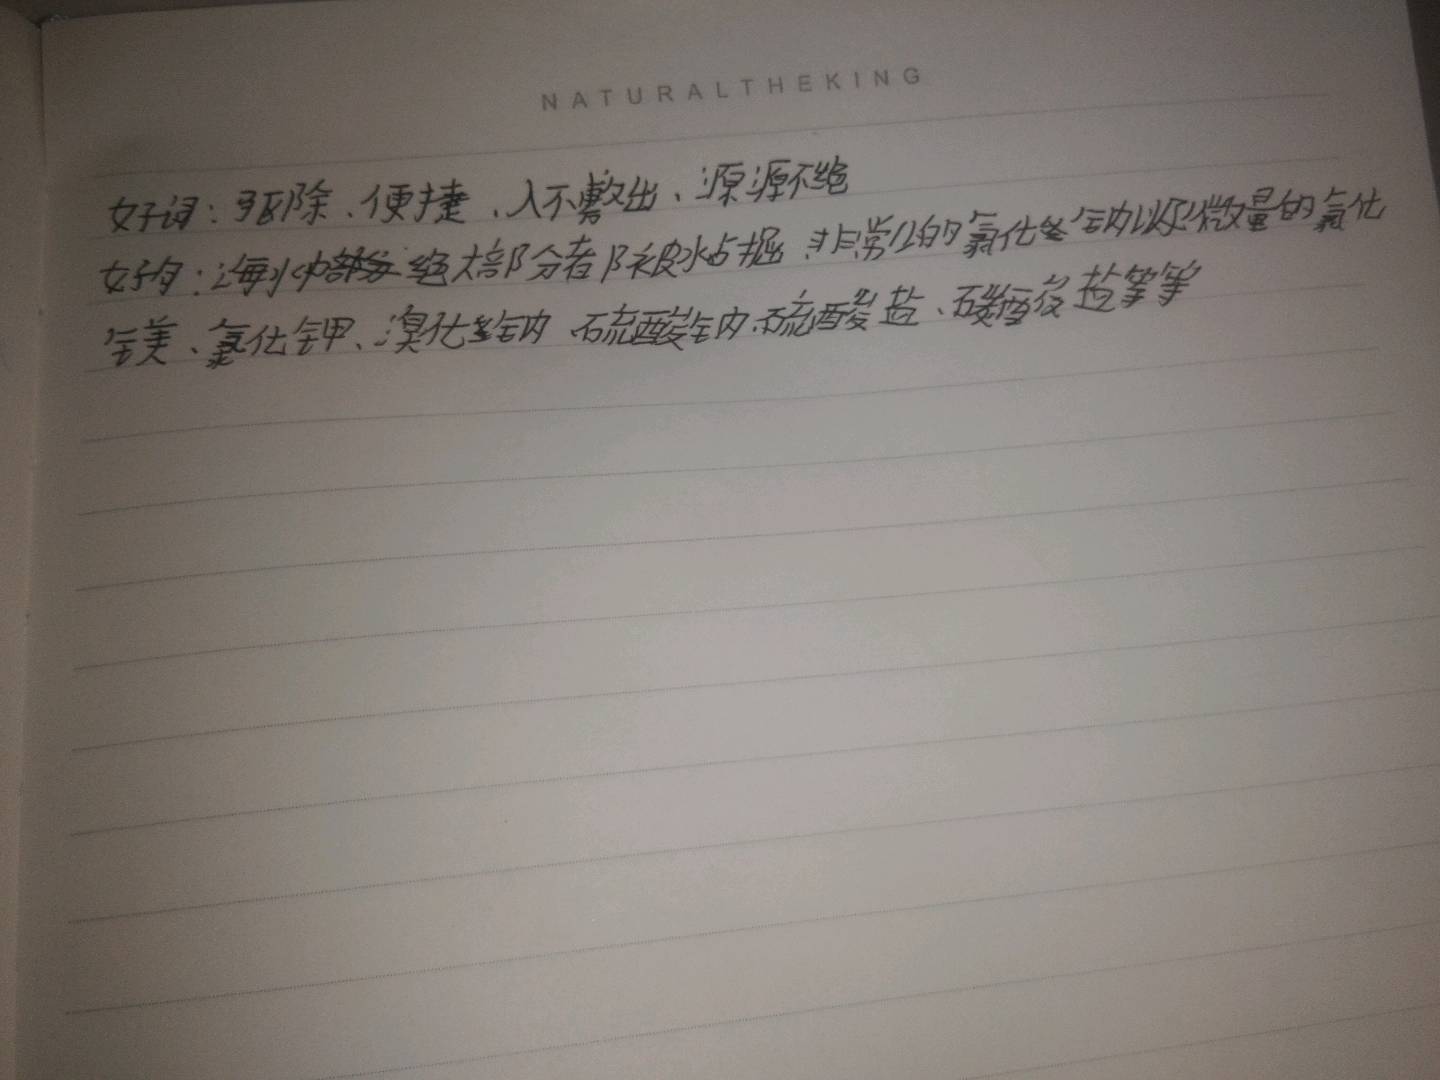 NATURALTHEKING
好词：驱除、便捷、入不敷出、源源不绝
好句：海水中绝大部分都被水占掘，非常少的氯化钠以及微量的氯化
镁、氯化钾、溴化钠、硫酸钠、硫酸盐、碳酸盐等等